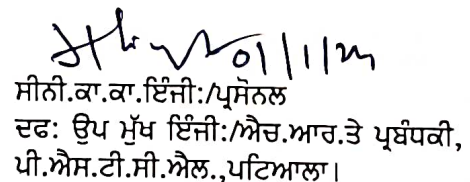 01/1/24
ਸੀਨੀ.ਕਾ.ਕਾ.ਇੰਜੀ:/ਪ੍ਰਸੋਨਲ
ਦਫ: ਉਪ ਮੁੱਖ ਇੰਜੀ:/ਐਚ.ਆਰ.ਤੇ ਪ੍ਰਬੰਧਕੀ,
ਪੀ.ਐਸ.ਟੀ.ਸੀ.ਐਲ.,ਪਟਿਆਲਾ।